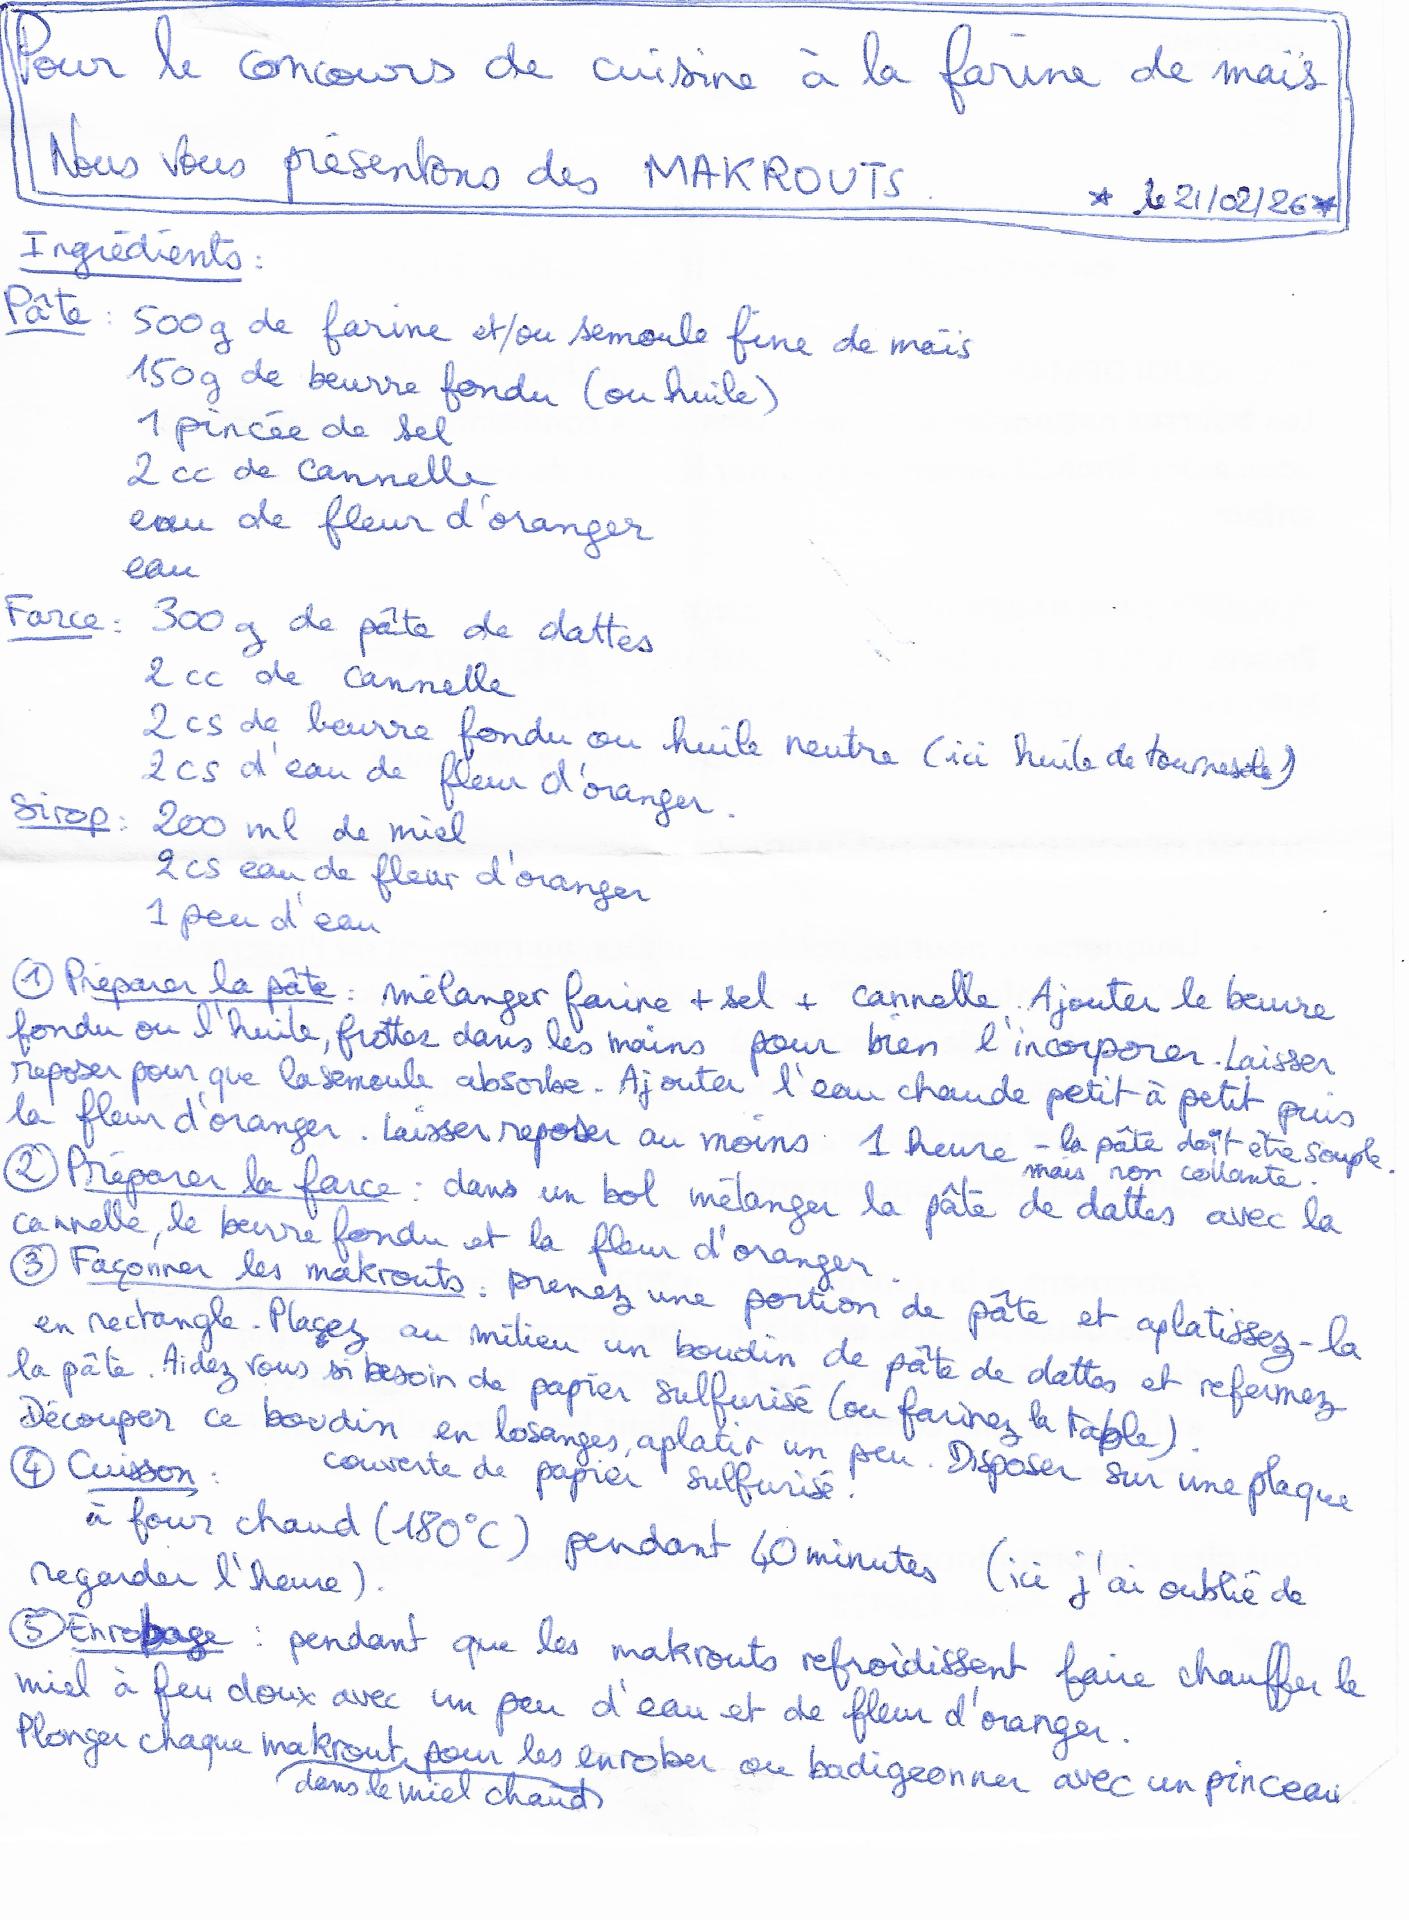 Pour le concours de cuisine à la farine de maïs
Nous vous présentons des MAKROUTS.
* le 21/02/26 *
Ingrédients :
Pâte : 500g de farine et/ou semoule fine de maïs
150g de beurre fondu (ou huile)
1 pincée de sel
2 cc de cannelle
eau de fleur d'oranger
eau
Farce : 300 g de pâte de dattes
2 cc de cannelle
2 cs de beurre fondu ou huile neutre (ici huile de)
2 cs d'eau de fleur d'oranger.
Sirop : 200 ml de miel
2 cs eau de fleur d'oranger
1 peu d'eau
① Préparer la pâte : mélanger farine + sel + cannelle. Ajouter le beurre
fondu ou l'huile, frottez dans les mains pour bien l'incorporer. Laisser
reposer pour que la semoule absorbe. Ajouter l'eau chaude petit à petit puis
la fleur d'oranger. Laisser reposer au moins 1 heure - la pâte doit être souple
mais non collante.
② Préparer la farce : dans un bol mélanger la pâte de dattes avec la
cannelle, le beurre fondu et la fleur d'oranger.
③ Façonner les makrouts : prenez une portion de pâte et aplatissez-la
en rectangle. Placez au milieu un boudin de pâte de dattes et refermez
la pâte. Aidez vous si besoin de papier sulfurisé (ou farinez la table).
Découper ce boudin en losanges, aplatir un peu. Disposer sur une plaque
couverte de papier sulfurisé.
④ Cuisson :
à four chaud (180°C) pendant 40 minutes (ici j'ai oublié de
regarder l'heure).
⑤ Enrobage : pendant que les makrouts refroidissent faire chauffer le
miel à feu doux avec un peu d'eau et de fleur d'oranger.
Plonger chaque makrout pour les enrober ou badigeonner avec un pinceau
dans le miel chaud